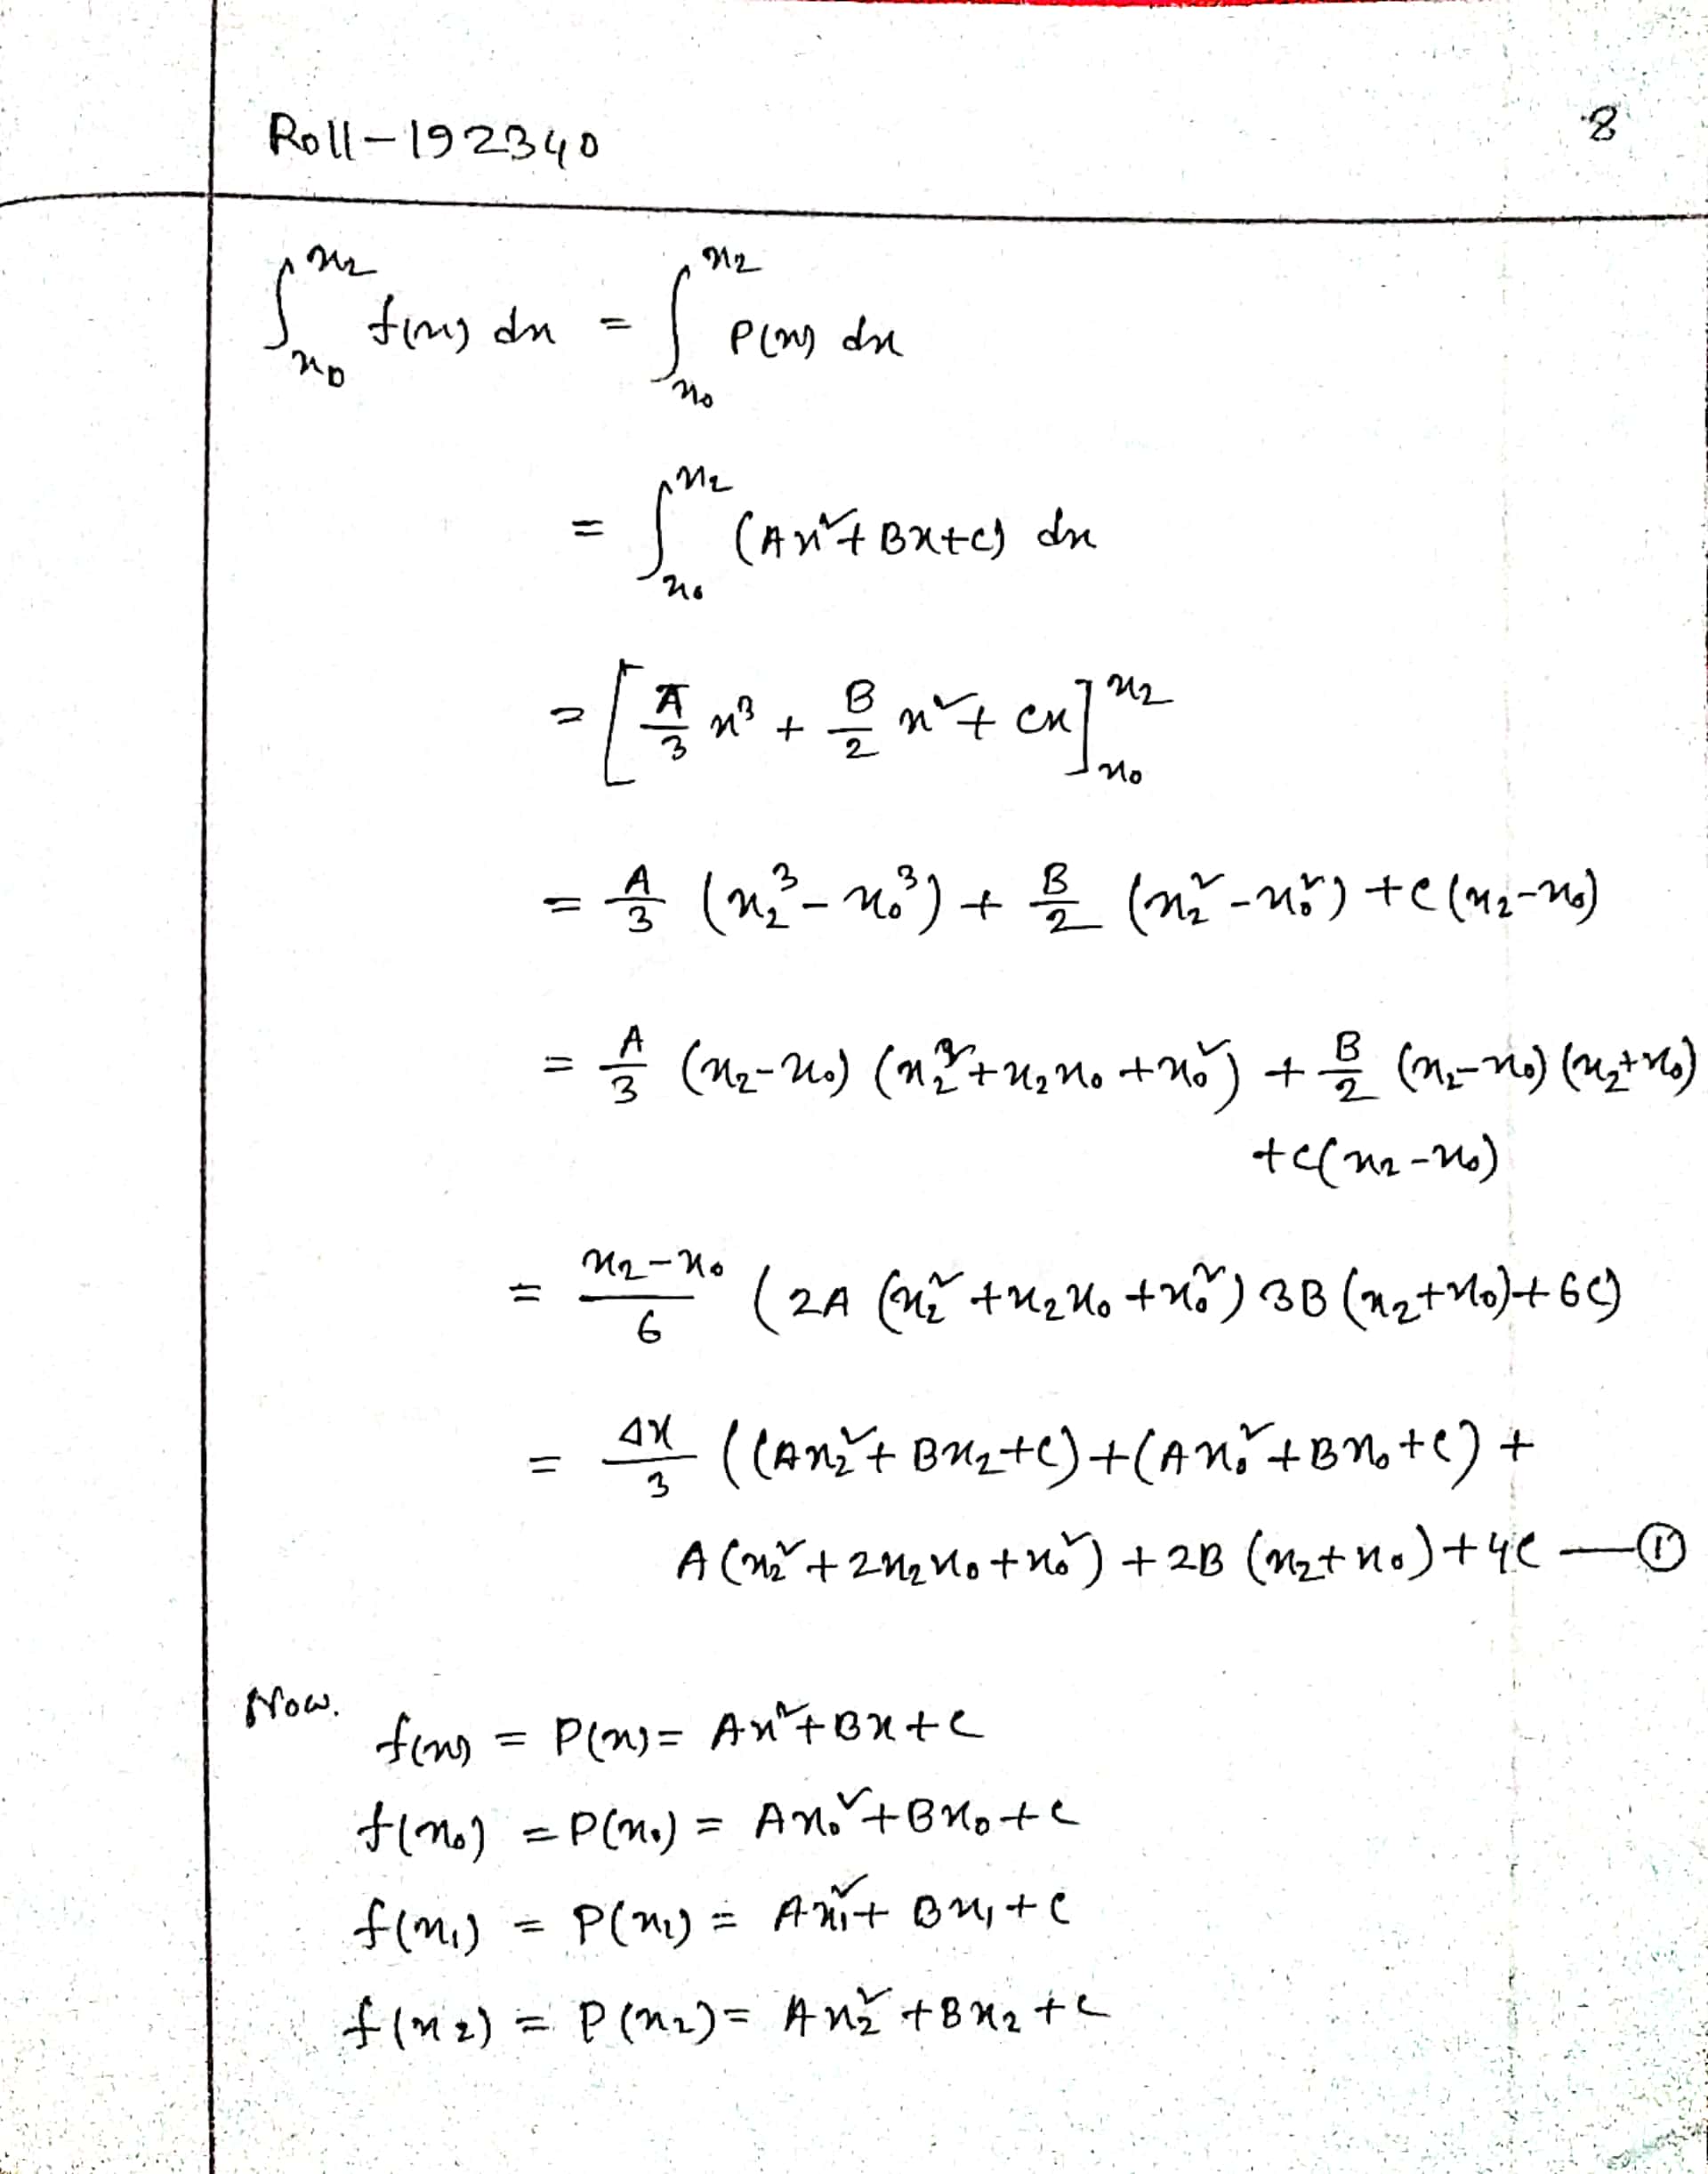 Roll-192340
8
∫_{x₀}^{x₂} f(x) dx = ∫_{x₀}^{x₂} P(x) dx
= ∫_{x₀}^{x₂} (Ax²+Bx+c) dx
= [A/3 x³ + B/2 x² + cx]_{x₀}^{x₂}
= A/3 (x₂³-x₀³) + B/2 (x₂²-x₀²) +c(x₂-x₀)
= A/3 (x₂-x₀) (x₂²+x₂x₀+x₀²) + B/2 (x₂-x₀)(x₂+x₀)
+c(x₂-x₀)
= x₂-x₀/6 (2A (x₂²+x₂x₀+x₀²) 3B(x₂+x₀)+6c)
= Δx/3 ((Ax₂²+Bx₂+c)+(Ax₀²+Bx₀+c)+
A(x₂²+2x₂x₀+x₀²)+2B(x₂+x₀)+4c —①
Now.
f(x) = P(x)= Ax²+Bx+c
f(x₀) =P(x₀) = Ax₀²+Bx₀+c
f(x₁) = P(x₁) = Ax₁²+Bx₁+c
f(x₂) = P(x₂)= Ax₂²+Bx₂+c